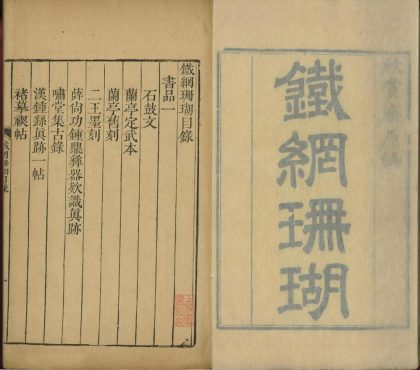 鐵網珊瑚
鐵網珊瑚目錄
書品一
石鼓文
蘭亭定武本
蘭亭舊刻
二王墨刻
薛尚功鍾鼎彝器欵識真跡
嘯堂集古錄
漢鍾繇真跡一帖
褚摹禊帖